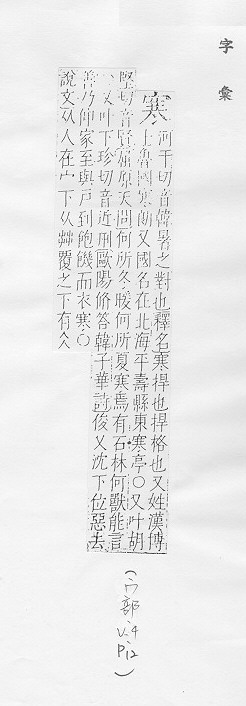 字彙
寒
河干切音韓暑之對也釋名寒捍也捍格也又姓漢博
士魯國寒朗又國名在北海平壽縣東寒亭○又叶胡
堅切音賢屈原天問何所冬暖何所夏寒焉有石林何獸能言
○又叶下珍切音近刑歐陽脩答韓子華詩俊乂沈下位惡去
善乃伸家至與戶到飽饑而衣寒○
說文从人在宀下从茻覆之下有仌
(宀部 V.4 P.12)